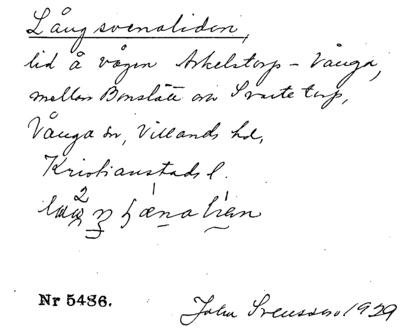 Långsvenaliden,
lid å vägen Arkelstorp – Vånga,
mellan Bonslätt och Svartetorp,
Vånga sn, Villands hd,
Kristianstads l.
Nr 5486.
John Svensson 1929